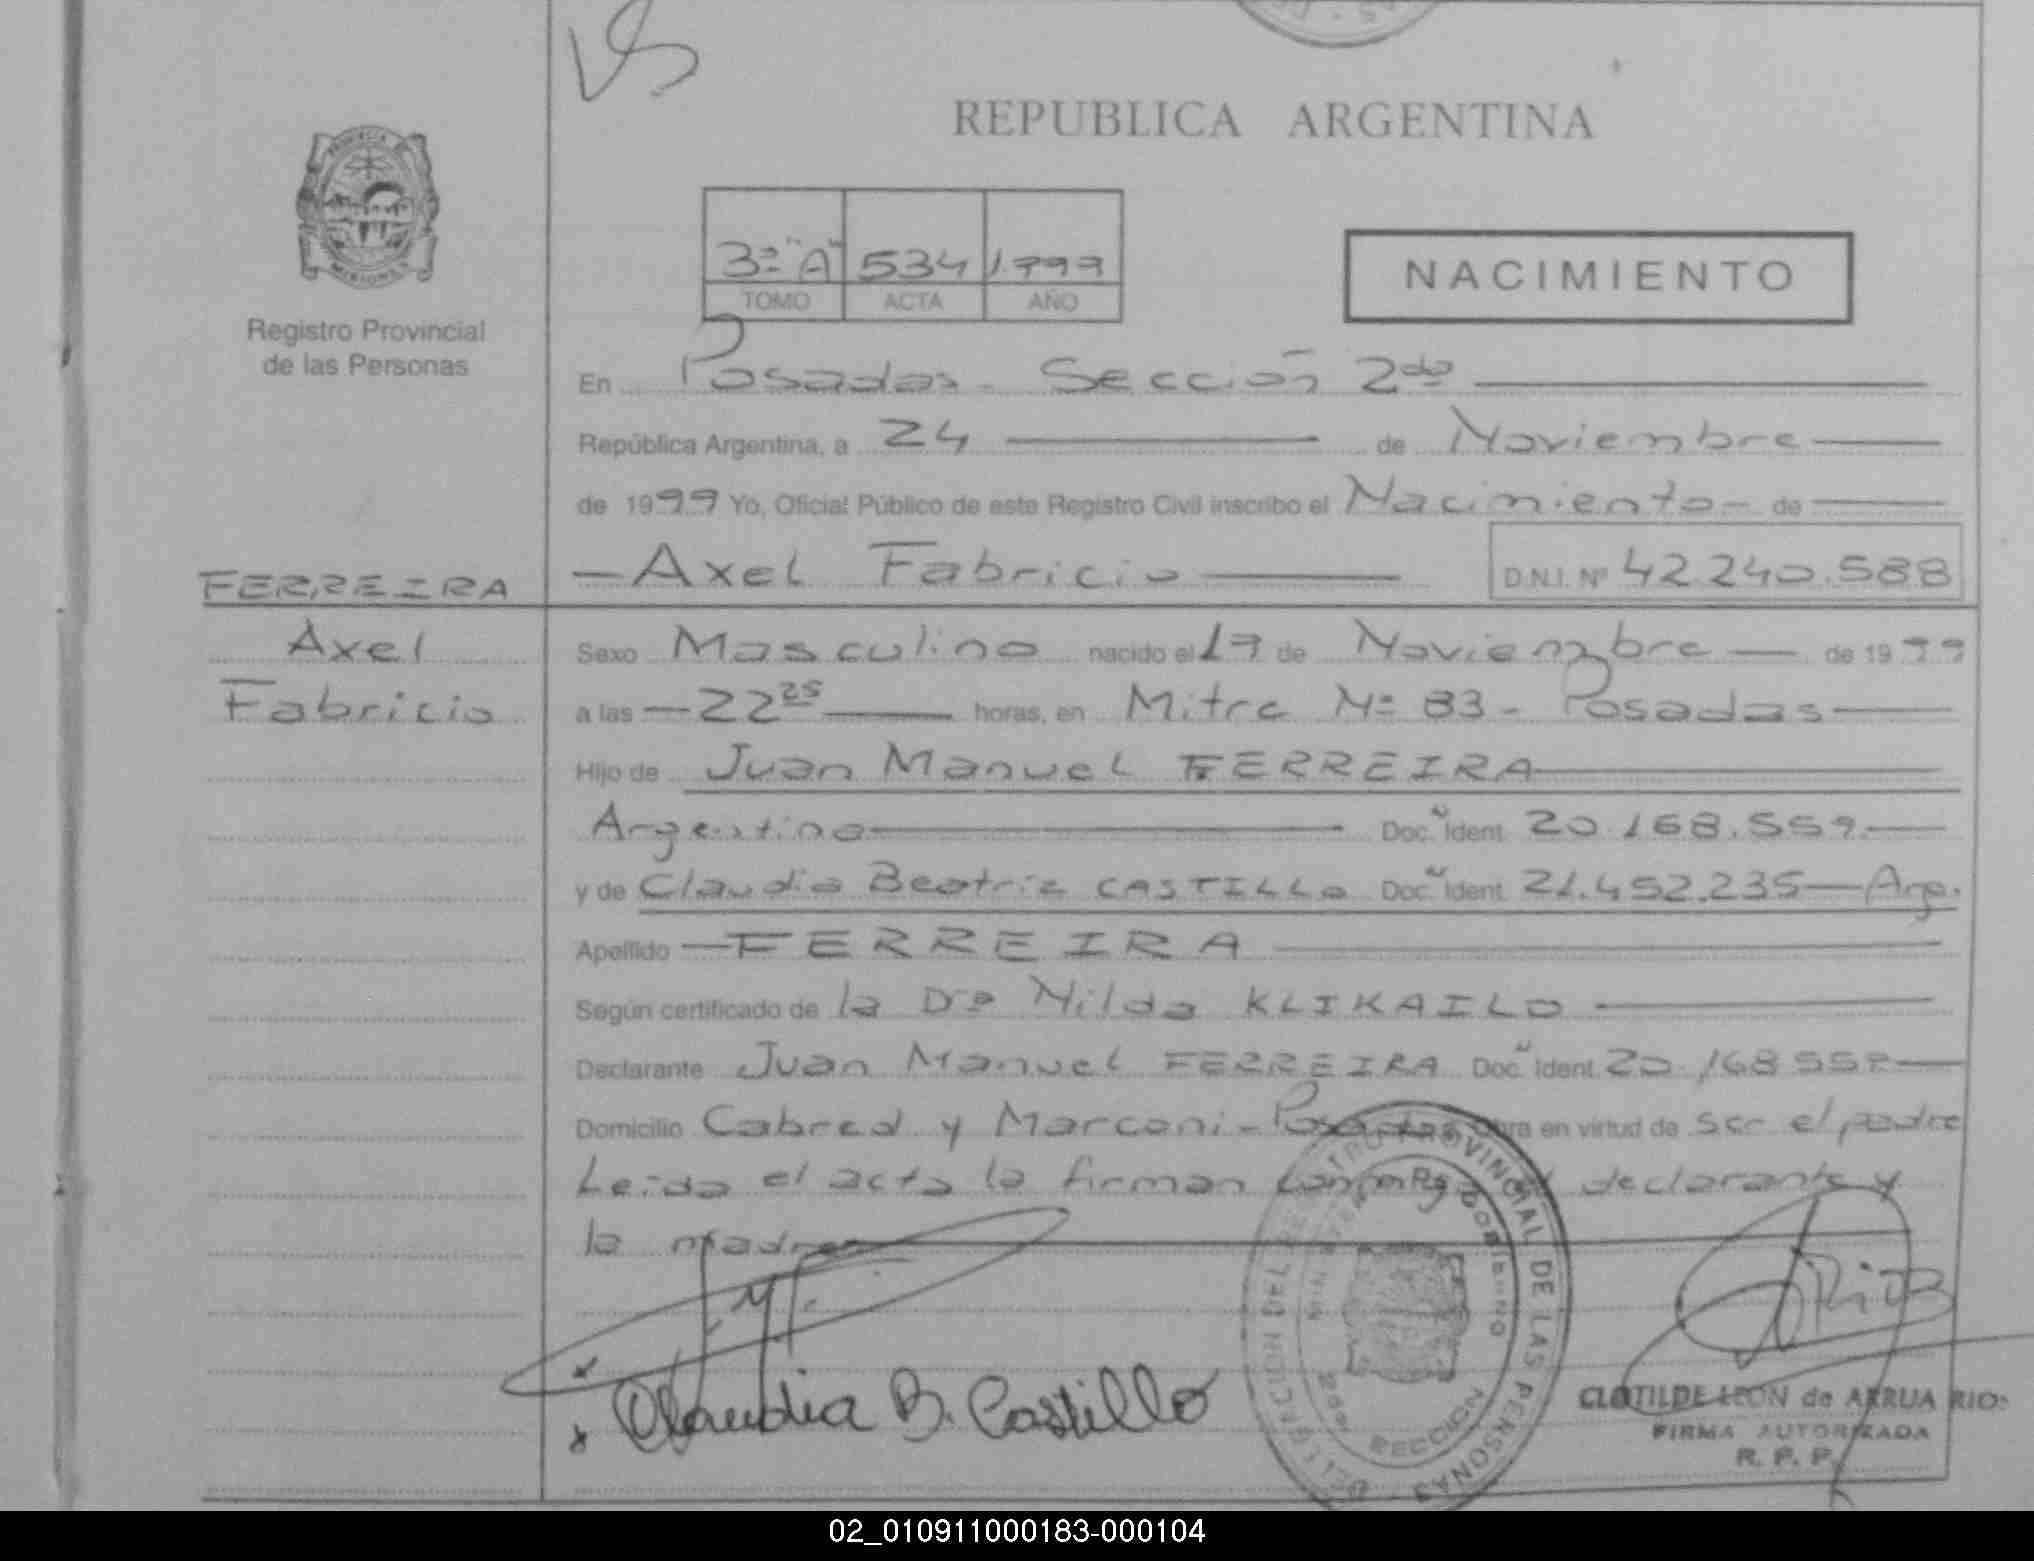 REPUBLICA ARGENTINA
PROVINCIA
MISIONES
Registro Provincial
de las Personas
3º "A" 534 1.999
TOMO ACTA AÑO
NACIMIENTO
En Posadas - Sección 2da
República Argentina, a 24 de Noviembre
de 1999 Yo, Oficial Público de este Registro Civil inscribo el Nacimiento - de
Axel Fabricio D.N.I. Nº 42.240.588
FERREIRA
Axel
Fabricio
Sexo Masculino nacido el 17 de Noviembre de 1999
a las 22 25 horas, en Mitre Nº 83 - Posadas
Hijo de Juan Manuel FERREIRA
Argentino Doc. Ident. 20.168.559.
y de Claudia Beatriz CASTILLO Doc. Ident. 21.452.235 Arg.
Apellido FERREIRA
Según certificado de la Dra Nilda KLIKAILO
Declarante Juan Manuel FERREIRA Doc. Ident. 20.168.559
Domicilio Cabred y Marconi - Posadas Obra en virtud de ser el padre
Leída el acta la firman declarante y
la madre
Claudia B. Castillo
REGISTRO PROVINCIAL DE LAS PERSONAS
SECCION
CLOTILDE LEON de ARRUA RIOS
FIRMA AUTORIZADA
R. P. P.
02_010911000183-000104